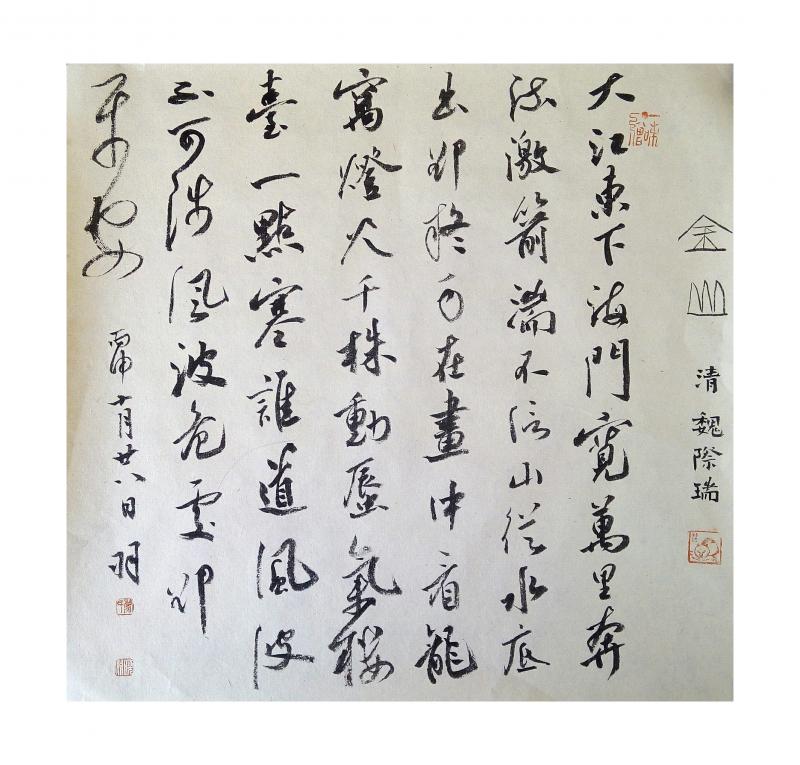 金山
清魏際瑞
大江東下海門寬萬里奔
流激箭湍不信山從水底
出卻疑身在畫中看龍
窩燈火千株動蜃氣樓
臺一點寒誰道風波
不可涉風波危處卻
平安
丙申十月廿八日羽